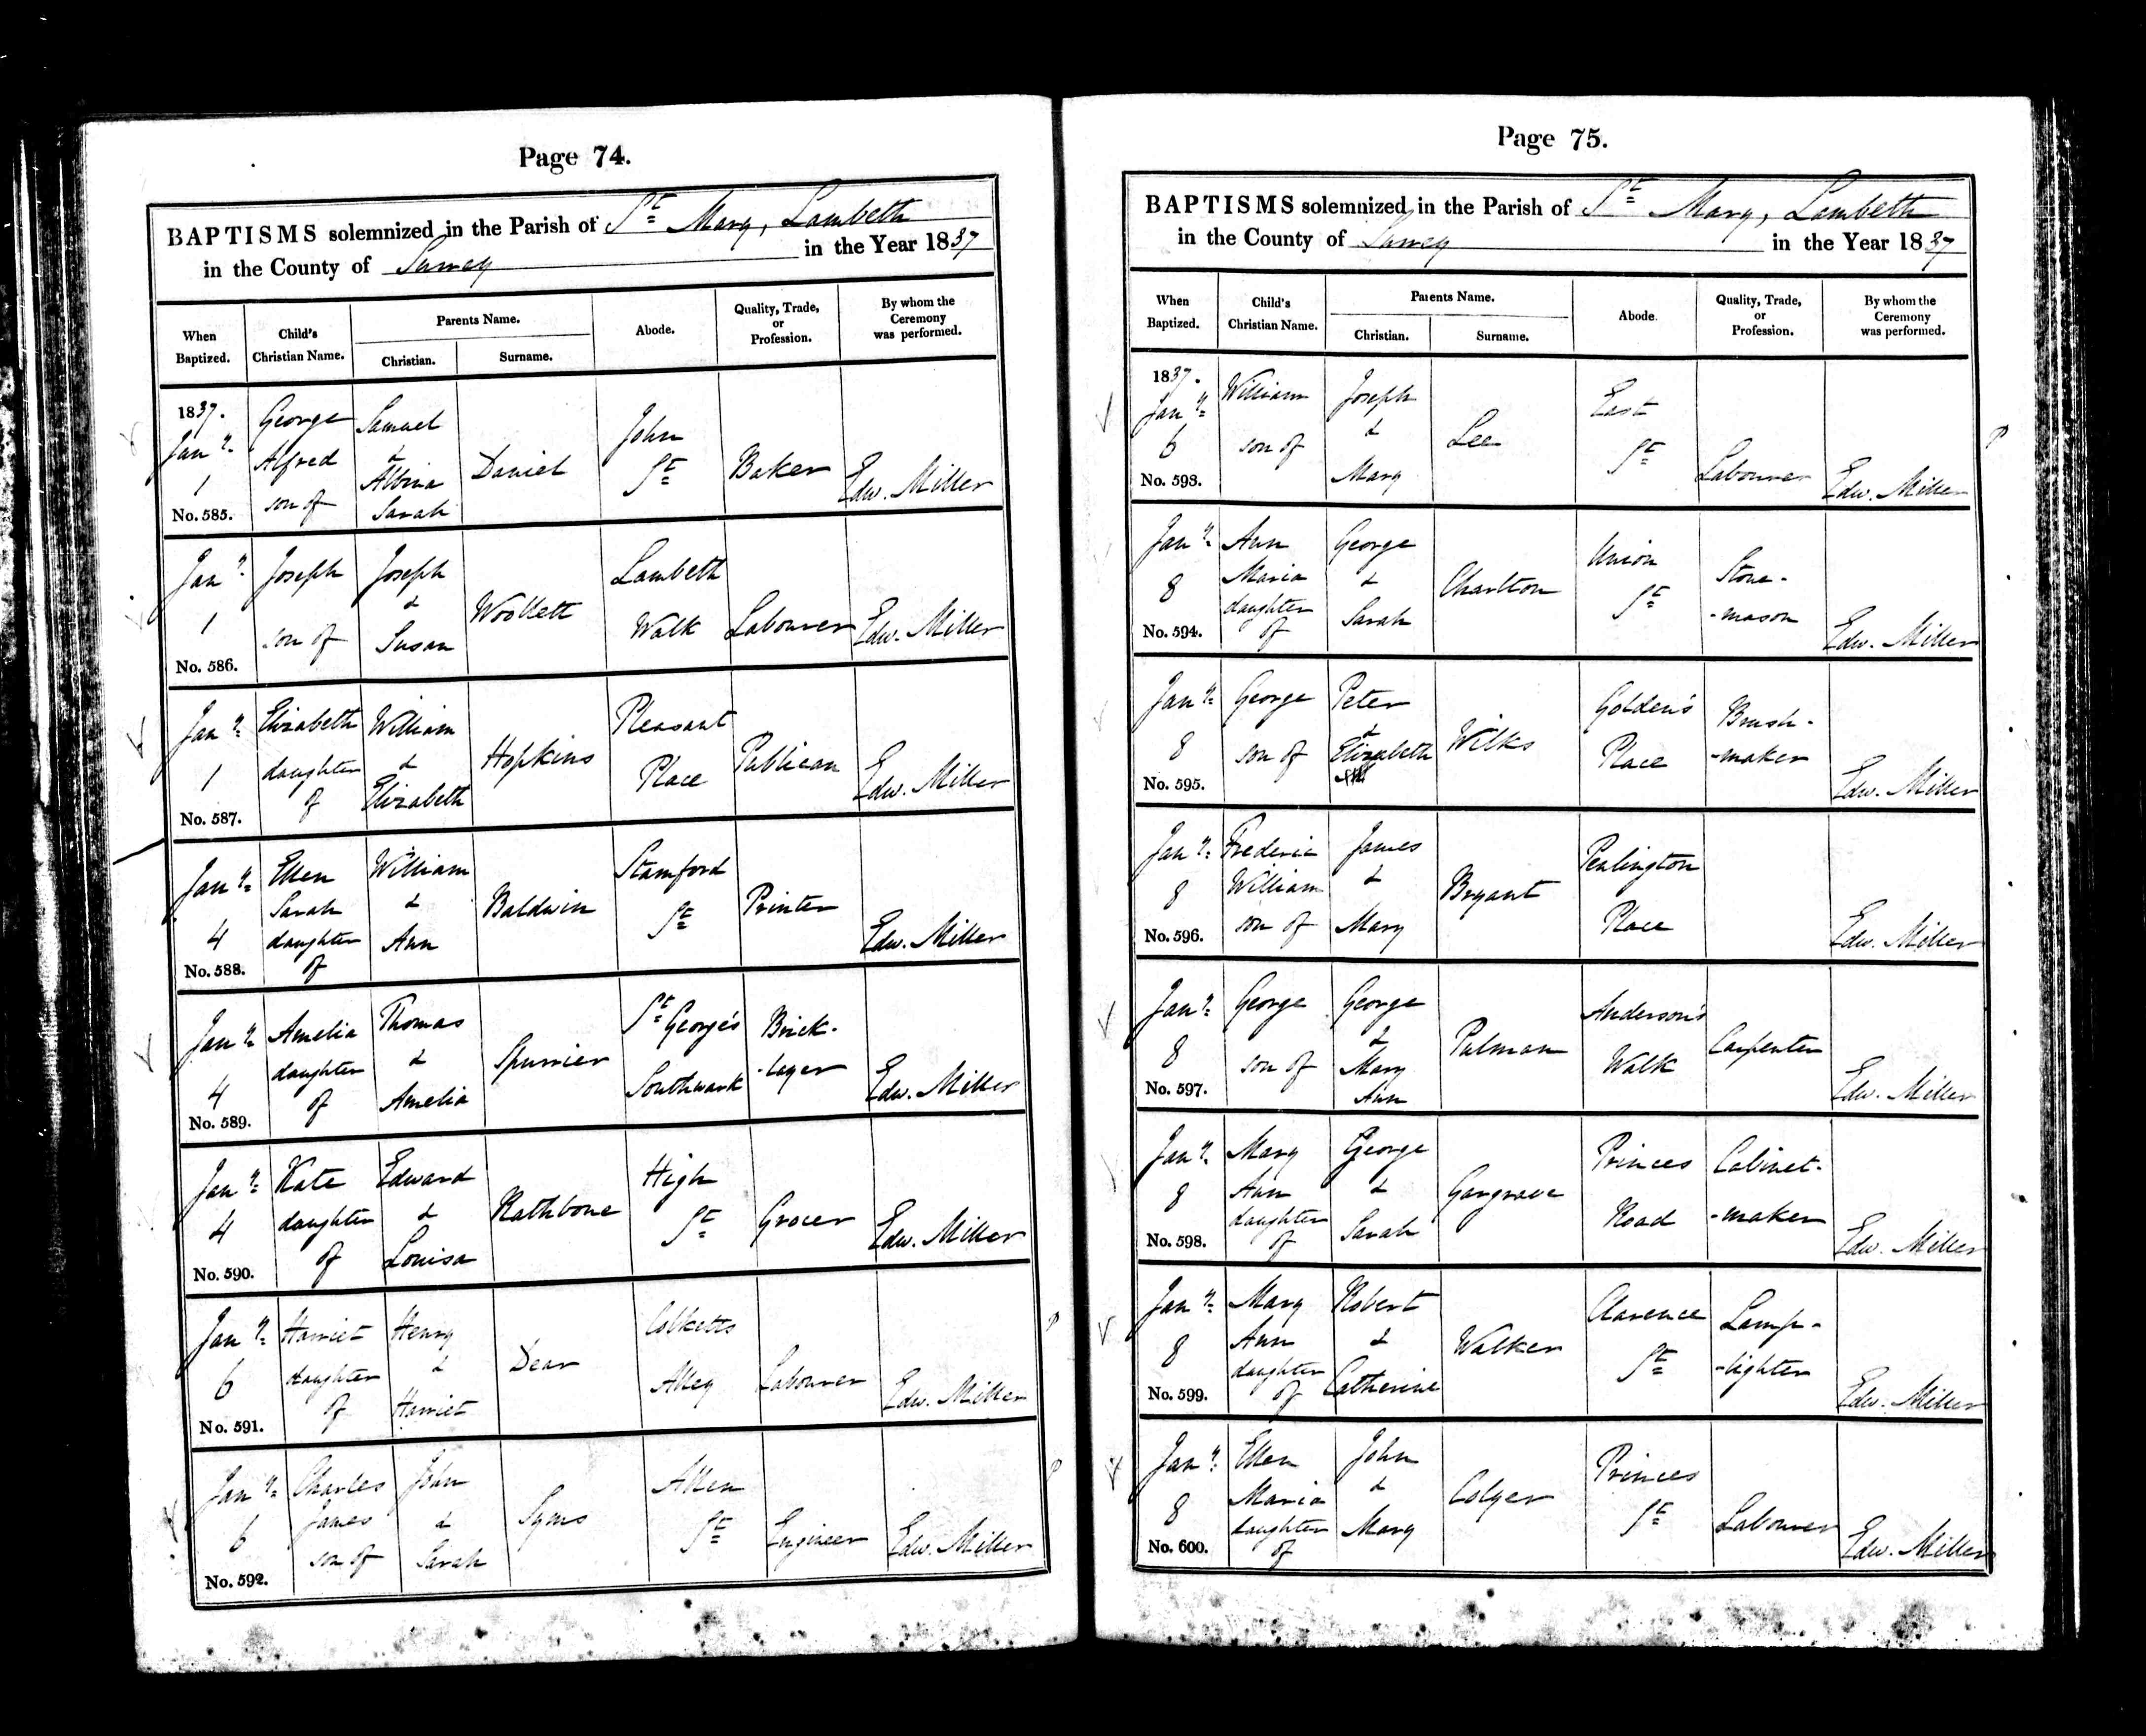 Page 74.
BAPTISMS solemnized in the Parish of St Mary, Lambeth
in the County of Surrey in the Year 1837
When Baptized.
Child's Christian Name.
Parents Name.
Christian.
Surname.
Abode.
Quality, Trade, or Profession.
By whom the Ceremony was performed.
1837.
Jany 1
No. 585.
George Alfred son of
Samuel & Albina Sarah
Daniel
John St
Baker
Edw. Miller
Jany 1
No. 586.
Joseph son of
Joseph & Susan
Woollett
Lambeth Walk
Labourer
Edw. Miller
Jany 1
No. 587.
Elizabeth daughter of
William & Elizabeth
Hopkins
Pleasant Place
Publican
Edw. Miller
Jany 4
No. 588.
Ellen Sarah daughter of
William & Ann
Baldwin
Stamford St
Printer
Edw. Miller
Jany 4
No. 589.
Amelia daughter of
Thomas & Amelia
Spurrier
St George's Southwark
Brick-
-layer
Edw. Miller
Jany 4
No. 590.
Kate daughter of
Edward & Louisa
Rathbone
High St
Grocer
Edw. Miller
Jany 6
No. 591.
Harriet daughter of
Henry & Harriet
Dear
Alley
Labourer
Edw. Miller
Jany 6
No. 592.
Charles James son of
John & Sarah
Syms
Allen St
Engineer
Edw. Miller
Page 75.
BAPTISMS solemnized in the Parish of St Mary, Lambeth
in the County of Surrey in the Year 1837
When Baptized.
Child's Christian Name.
Parents Name.
Christian.
Surname.
Abode.
Quality, Trade, or Profession.
By whom the Ceremony was performed.
1837.
Jany 6
No. 593.
William son of
Joseph & Mary
Lee
East St
Labourer
Edw. Miller
Jany 8
No. 594.
Ann Maria daughter of
George & Sarah
Charlton
Union St
Stone-
-mason
Edw. Miller
Jany 8
No. 595.
George son of
Peter & Elizabeth
Wilks
Golden's Place
Brush-
-maker
Edw. Miller
Jany 8
No. 596.
Frederic William son of
James & Mary
Bryant
Penlington Place
Edw. Miller
Jany 8
No. 597.
George son of
George & Mary Ann
Pulman
Anderson's Walk
Carpenter
Edw. Miller
Jany 8
No. 598.
Mary Ann daughter of
George & Sarah
Gargrave
Princes Road
Cabinet-
-maker
Edw. Miller
Jany 8
No. 599.
Mary Ann daughter of
Robert & Catherine
Walker
Clarence St
Lamp-
-lighter
Edw. Miller
Jany 8
No. 600.
Ellen Maria daughter of
John & Mary
Colyer
Princes St
Labourer
Edw. Miller